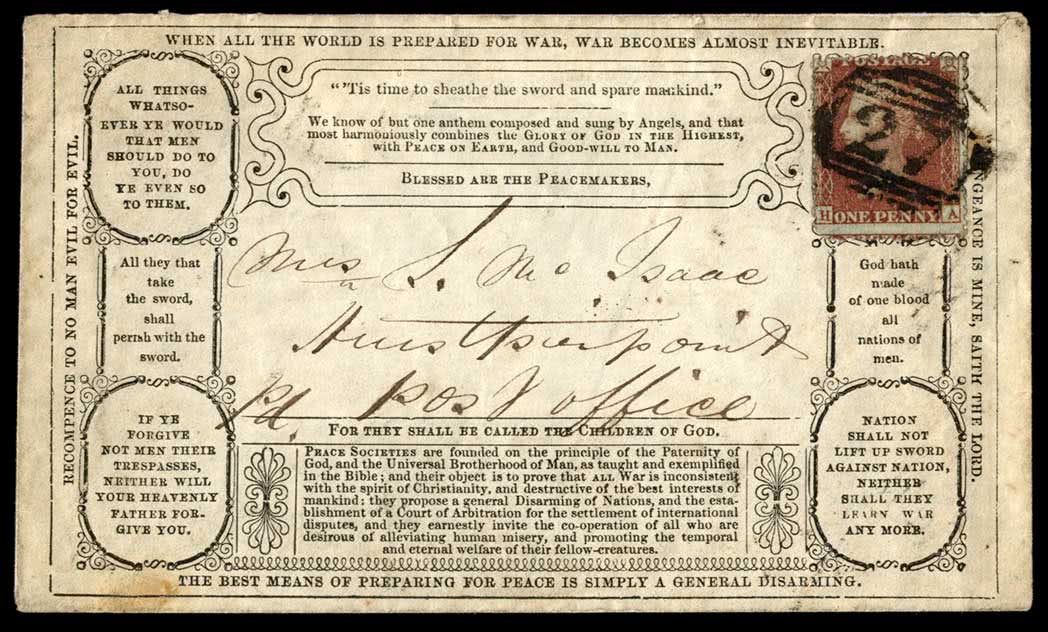 WHEN ALL THE WORLD IS PREPARED FOR WAR, WAR BECOMES ALMOST INEVITABLE.
RECOMPENCE TO NO MAN EVIL FOR EVIL.
ALL THINGS
WHATSO-
EVER YE WOULD
THAT MEN
SHOULD DO TO
YOU, DO
YE EVEN SO
TO THEM.
All they that
take
the sword,
shall
perish with the
sword.
IF YE
FORGIVE
NOT MEN THEIR
TRESPASSES,
NEITHER WILL
YOUR HEAVENLY
FATHER FOR-
GIVE YOU.
"'Tis time to sheathe the sword and spare mankind."
We know of but one anthem composed and sung by Angels, and that
most harmoniously combines the GLORY OF GOD IN THE HIGHEST,
with PEACE ON EARTH, and GOOD-WILL TO MAN.
BLESSED ARE THE PEACEMAKERS,
Mrs S. Mc Isaac
Hurstpierpoint
pd. post office
FOR THEY SHALL BE CALLED THE CHILDREN OF GOD.
PEACE SOCIETIES are founded on the principle of the Paternity of
God, and the Universal Brotherhood of Man, as taught and exemplified
in the Bible; and their object is to prove that ALL War is inconsistent
with the spirit of Christianity, and destructive of the best interests of
mankind: they propose a general Disarming of Nations, and the esta-
blishment of a Court of Arbitration for the settlement of international
disputes, and they earnestly invite the co-operation of all who are
desirous of alleviating human misery, and promoting the temporal
and eternal welfare of their fellow-creatures.
2
H ONE PENNY A
God hath
made
of one blood
all
nations of
men.
NATION
SHALL NOT
LIFT UP SWORD
AGAINST NATION,
NEITHER
SHALL THEY
LEARN WAR
ANY MORE.
NGEANCE IS MINE, SAITH THE LORD.
THE BEST MEANS OF PREPARING FOR PEACE IS SIMPLY A GENERAL DISARMING.